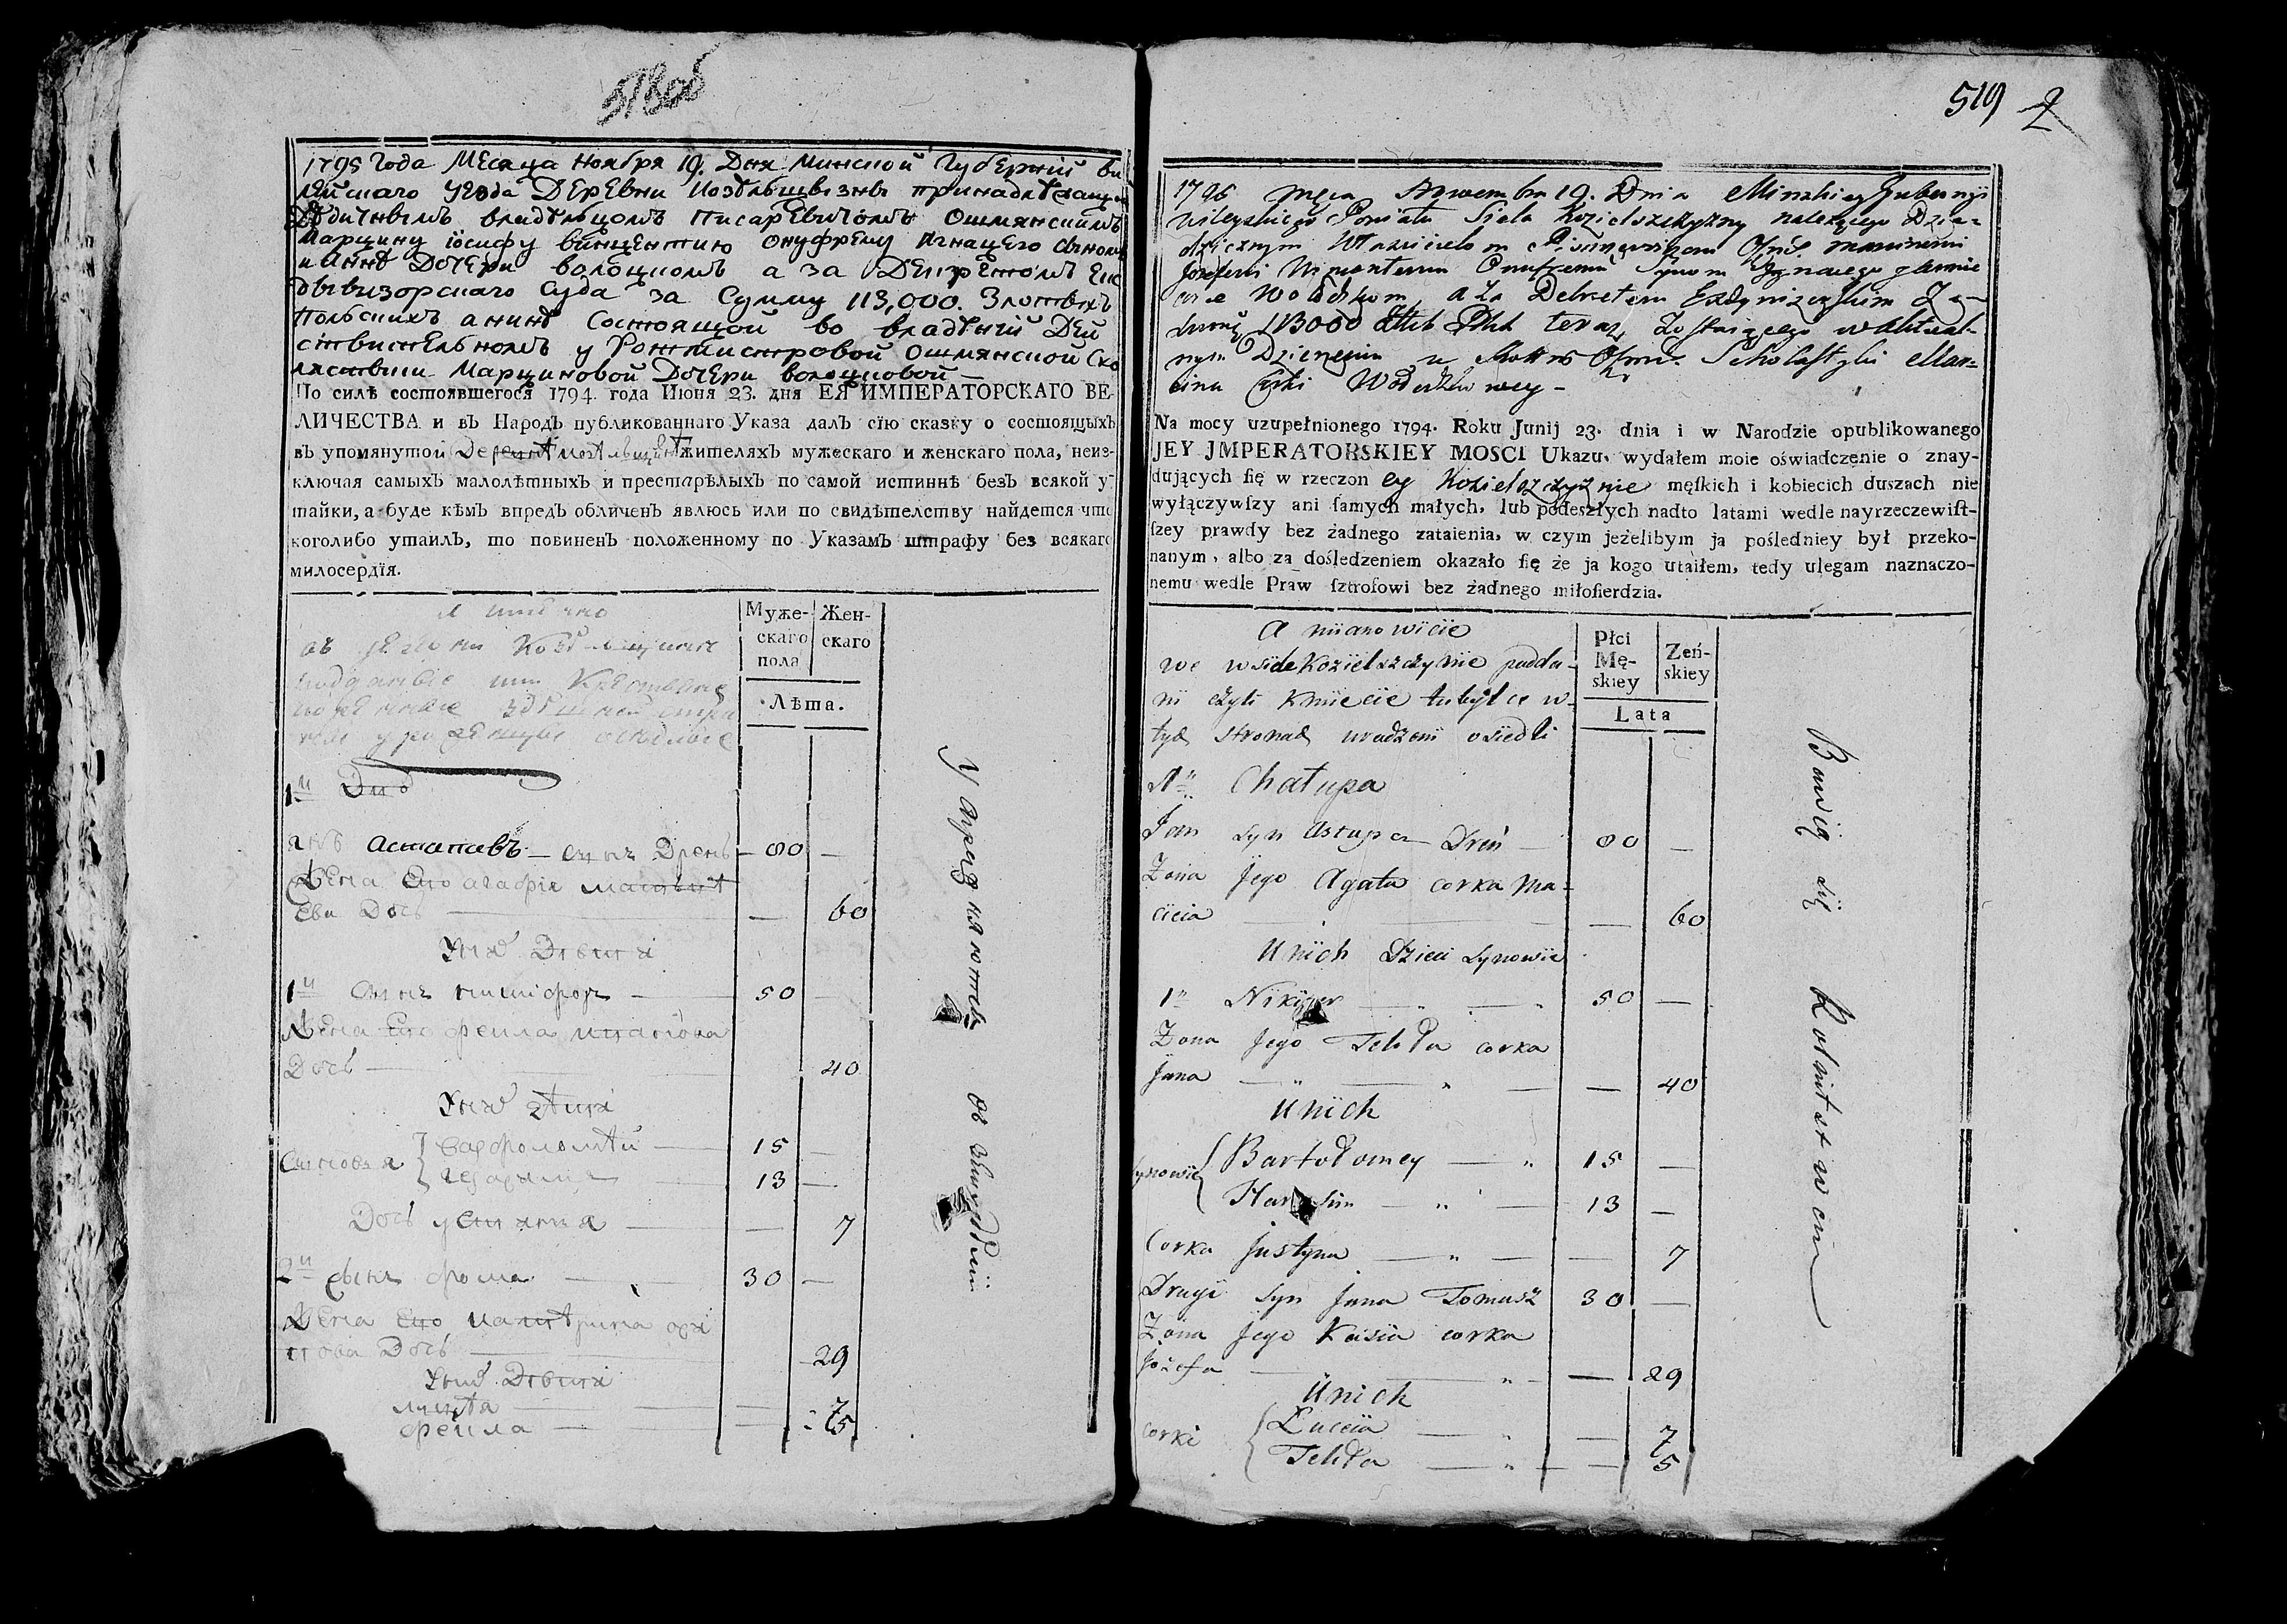 518об
1795 Года Месяца Ноября 19. Дня Минской Губернїи ви
лейскаго уезда Деревни Козельщизны принадлежащей
Дедичнымъ владельцомъ Писаревичомъ Ошмянскимъ
Марцину їосифу винцентию онуфрему Игнацего сыномъ
и Анне Дочери волоцкомъ а за Декретомъ Екс
дывизорскаго Суда за Сумму 113,000. Злотыхъ
Польскихъ а нине Состоящой во владении Дей
ствительномъ у Ротмистровой Ошмянской Ско
ластики Марциновой Дочери волоцковой —
По силѣ состоявшегося 1794. года Июня 23. дня ЕЯ ИМПЕРАТОРСКАГО ВЕ-
ЛИЧЕСТВА и въ Народъ публикованнаго Указа далъ сїю сказку о состоящыхъ
въ упомянутой Деревне жителяхъ мужескаго и женскаго пола, неиз-
ключая самыхъ малолѣтныхъ и престарѣлыхъ по самой истиннѣ безъ всякой у-
тайки, а буде кѣмъ впредъ обличенъ явлюсь или по свидѣтелству найдется что
коголибо утаилъ, то повиненъ положенному по Указамъ штрафу без всякаго
милосердїя.
а имѣнно
въ Козельщизне
подданые или Крестьяне
Муже-
скаго
пола
Жен-
скаго
Лѣта.
1й Дио
янъ астаповъ — сынъ Дрень — 80 —
Жена Его агафїя матвѣе
ева Дочь — 60
У них Дѣвки
1й Сынъ никифоръ — 50 —
Жена Его фекла
Дочь — 40
У них дѣти
Сыновья { варфоломѣй — 15 —
герасимъ — 13 —
Дочь устиня — — 7
2й сынъ фома — 30 —
Жена Его катѣрина оси
пова Дочь — 29
У них Дѣвки
луцѣя — — 7
фекла — — 5
519 2
1795 Mca Nowembra 19. Dnia Minskiey Gubernji
Wileyskiego Powiatu Siela Kozielszczyzny należącego Dzie-
dzicznym Włascicielom Pisarzewiczom Ofzm. Marcinemi
Jozefowi Wincentemu Onufremu Synom Ignacego y Annie
Wołodzkom, a za Dekretem Exdywizorskim Za
summę 113000 Złch Pol. teraz zostaiącego w aktual-
nym Dzierzeniu u Ofzm. Scholastyki Mar-
cina Corki Wołodzkowey —
Na mocy uzupełnionego 1794. Roku Junij 23. dnia i w Narodzie opublikowanego
JEY JMPERATORSKIEY MOSCI Ukazu, wydałem moie oświadczenie o znay-
dujących ſię w rzeczon ey Kozielszczyznie męſkich i kobiecich duszach nie
wyłączywſzy ani ſamych małych, lub podeszłych nadto latami wedle nayrzeczewiſt-
ſzey prawdy bez żadnego zataienia, w czym jeżelibym ja poſledniey był przeko-
nanym, albo za dośledzeniem okazało ſię że ja kogo utaiłem, tedy ulegam naznaczo-
nemu wedle Praw ſztrofowi bez żadnego miłoſierdzia.
a mianowicie
we wside Kozielszczyznie podda-
ni czyli kmiecie tubylce w
tych stronach urodzeni osiedli
Płci
Mę-
skiey
Zeń-
skiey
Lata
1n Chałupa
Jan syn Astapa Dreń — 80 —
Zona Jego Agata corka Ma-
cieia — 60
U nich Dzieci Synowie
1n Nikifor — 50 —
Zona Jego Tekla corka
Jana — — 40
U nich
Synowie { Bartołomey — 15 —
Harasim — 13 —
Corka Justyna — — 7
Drugi syn Jana Tomasz 30 —
Zona Jego Kasia corka
Jozefa — — 29
U nich
Corki { Luceia — — 7
Tekla — — 5
Bawią się Rolnictwem